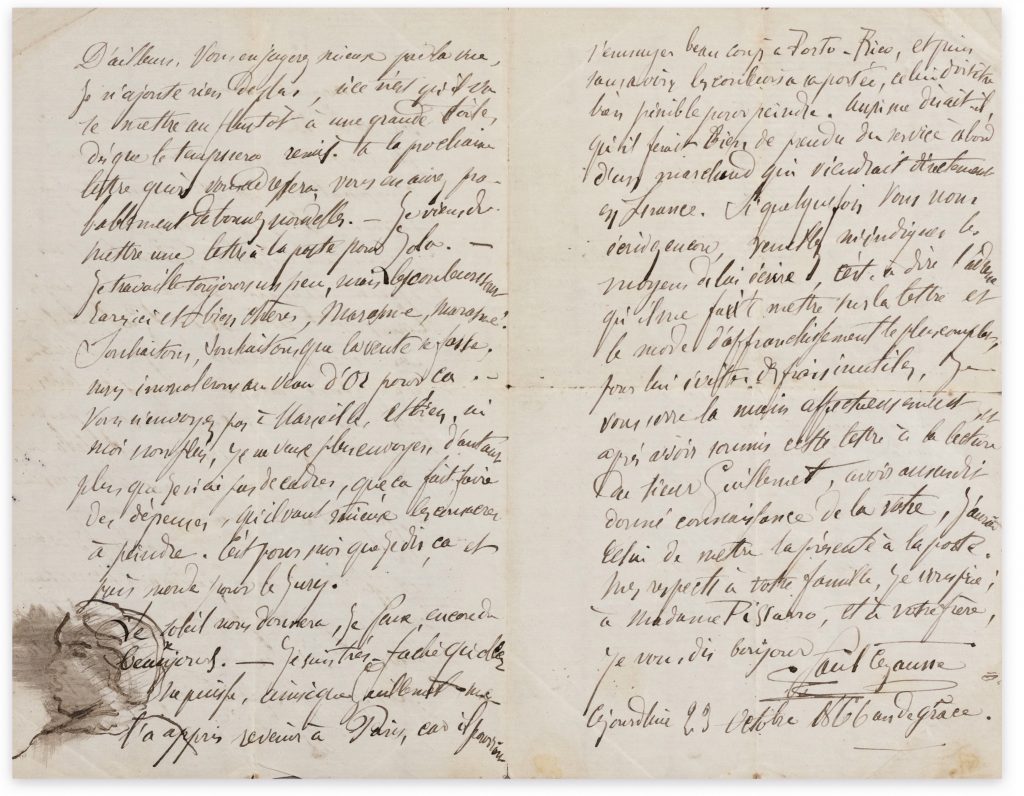 D'ailleurs, vous en jugerez mieux par la vue,
Je n'ajoute rien de plus, si ce n'est qu'il va
se mettre au plutôt à une grande toile,
dès que le temps sera remis. A la prochaine
lettre qu'on vous adressera, vous en aurez pro-
bablement de bonnes nouvelles. — Je viens de
mettre une lettre à la poste pour Zola. —
Je travaille toujours un peu, mais les couleurs sont
rares ici et bien chères, Marasme, marasme!
Souhaitons, souhaitons que la vente se fasse.
nous immolerons un Veau d'Or pour ça. —
Vous n'envoyez pas à Marseille, eh bien, ni
moi non plus, Je ne veux plus envoyer, d'autant
plus que je n'ai pas de cadres, que ça fait faire
des dépenses, qu'il vaut mieux les consacrer
à peindre. C'est pour moi que je dis ça et
puis merde pour le Jury.
Le soleil nous donnera, je pense, encore de
beaux jours. — Je suis très fâché qu'Oller
ne puisse, ainsi que Guillemet me
l'a appris revenir à Paris, car il pourrait
s'ennuyer beaucoup à Porto-Rico, et puis
sans avoir les couleurs à sa portée, ce lui doit être
bien pénible pour peindre. Aussi me disait-il
qu'il ferait bien de prendre du service à bord
d'un marchand qui viendrait directement
en France. Si quelquefois vous nous
écrivez encore, veuillez m'indiquer les
moyens de lui écrire, c'est à dire l'adresse
qu'il me faut mettre sur la lettre et
le mode d'affranchissement le plus complet,
pour lui éviter des frais inutiles, Je
vous serre la main affectueusement et
après avoir soumis cette lettre à la lecture
du sieur Guillemet, avoir aussi
donné connaissance de la vôtre, j'aurai
celui de mettre la présente à la poste.
Mes respects à votre famille, je vous prie;
à Madame Pissarro, et à votre frère,
Je vous dis bonjour
Paul Cezanne
Cejourdhui 23 Octobre 1866 an de grâce.